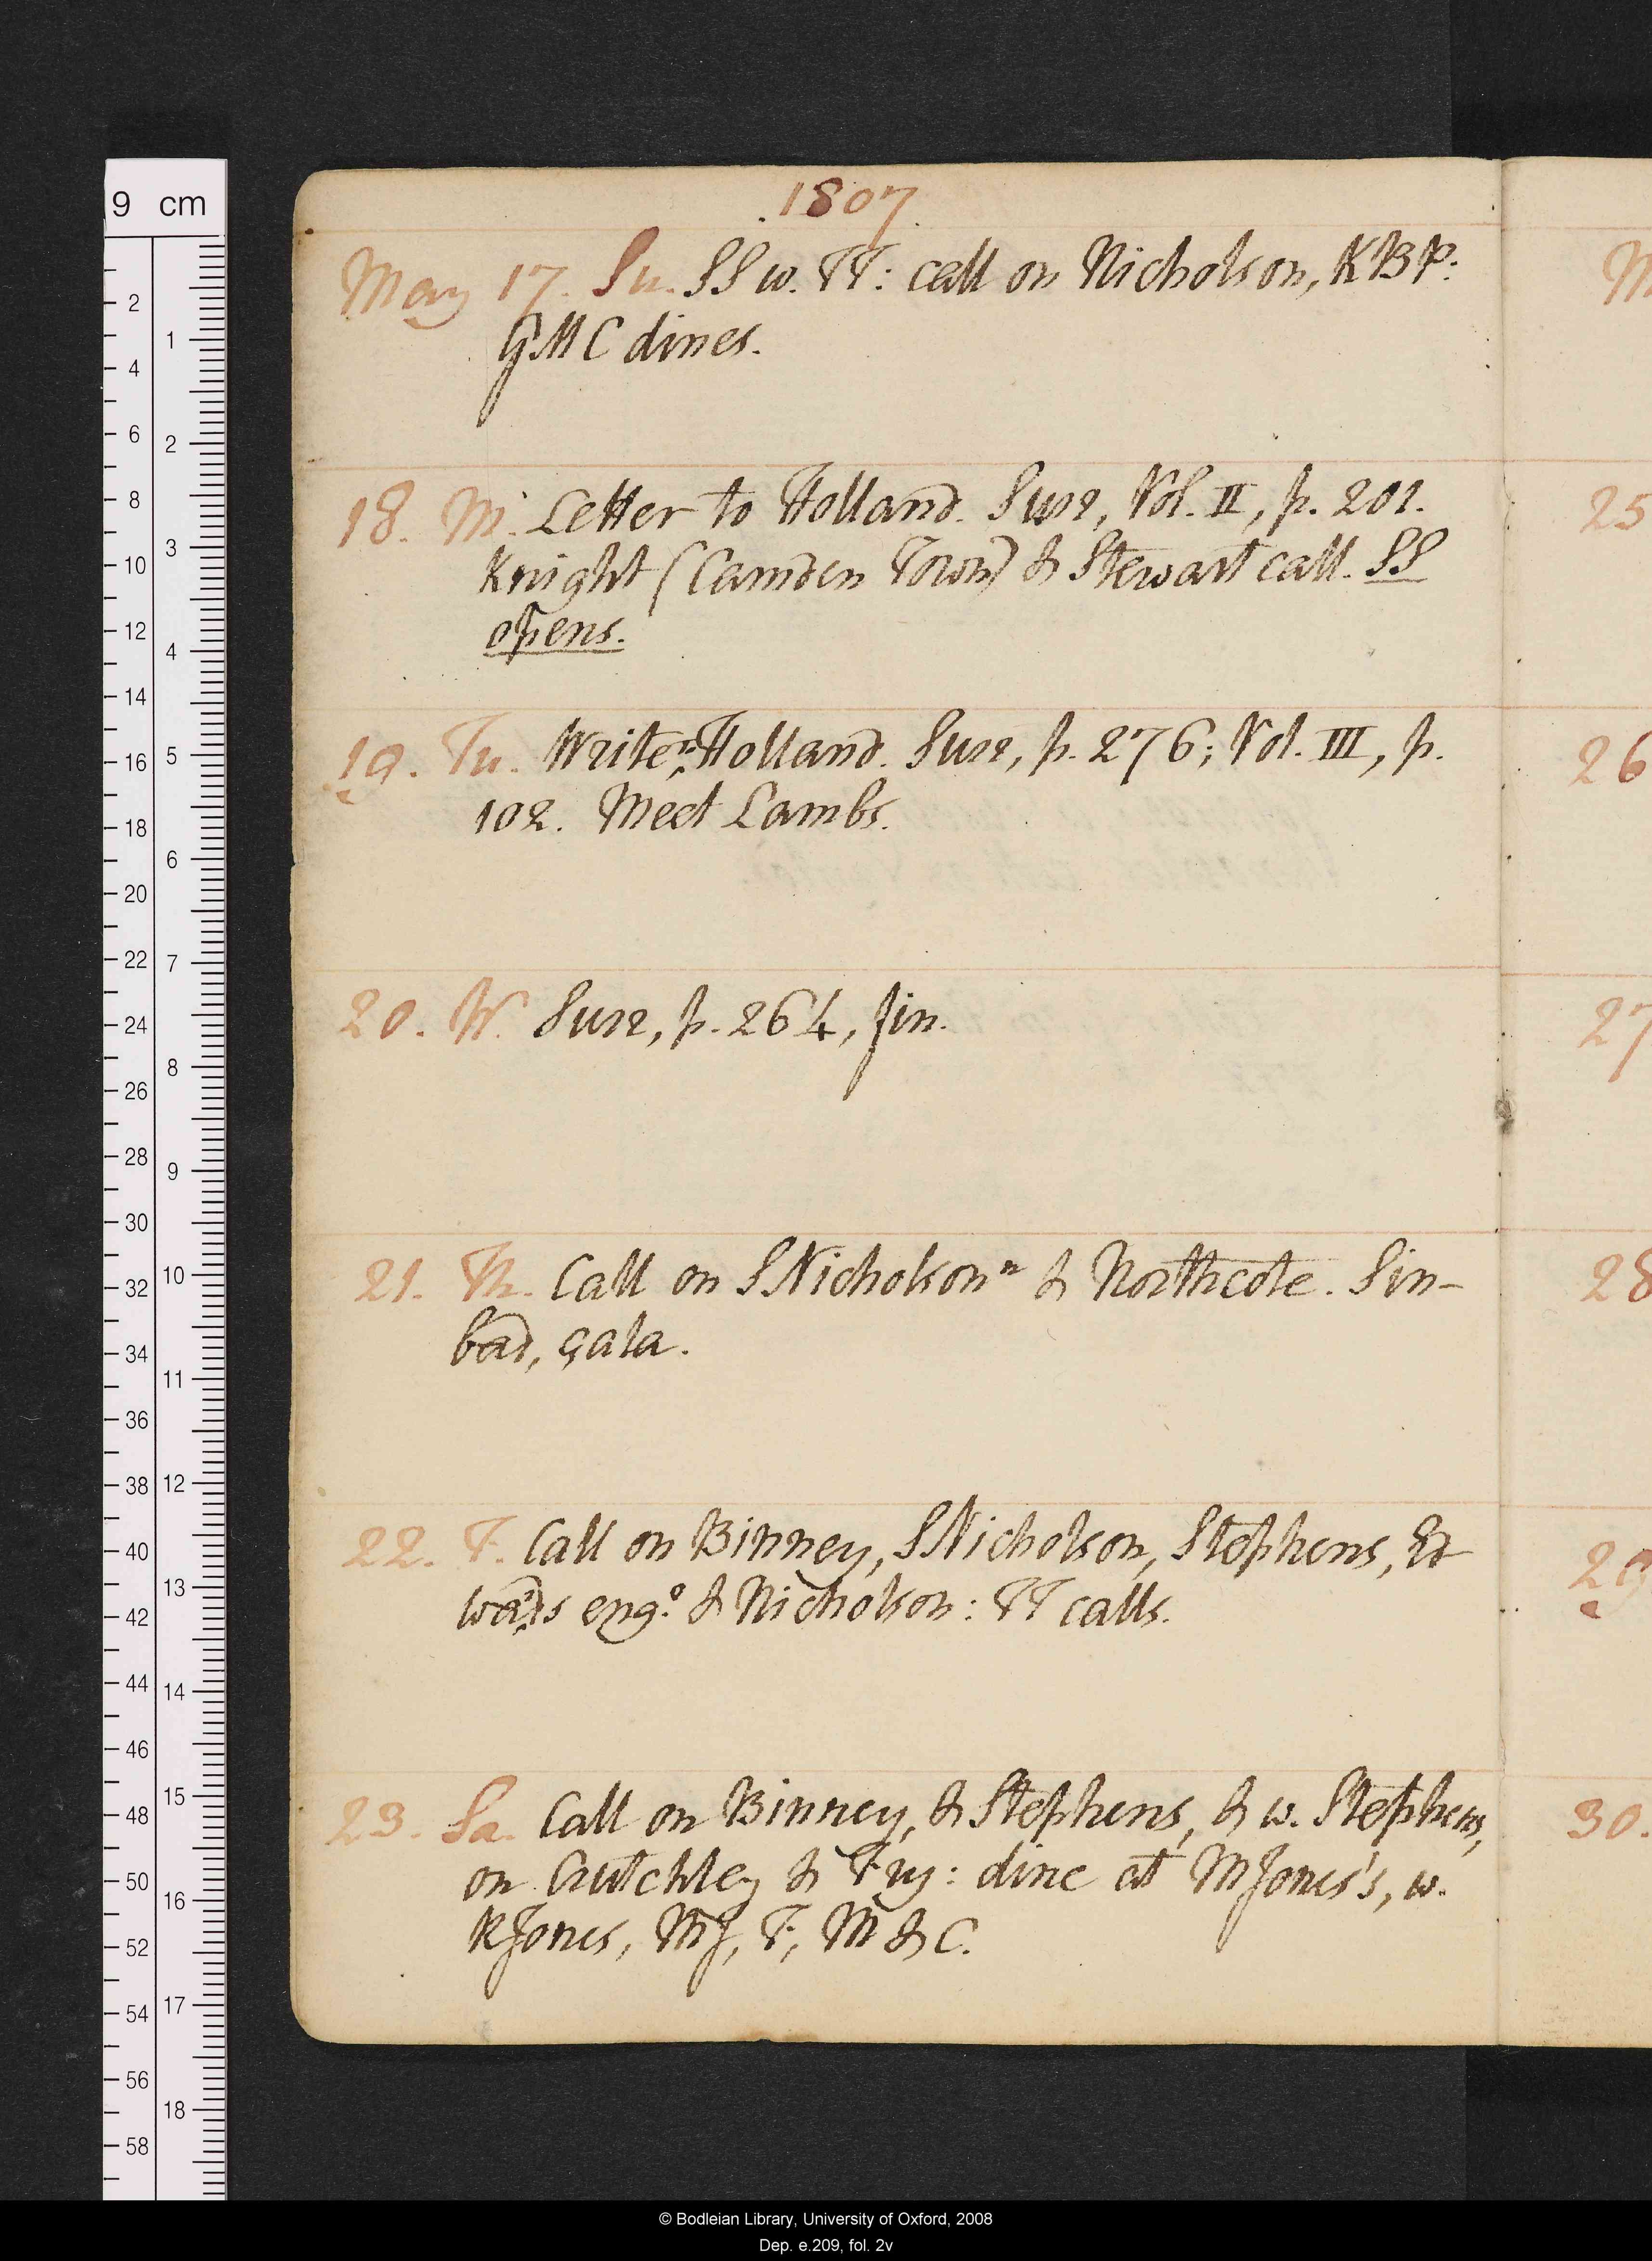 1807
May 17. Su. SS w. TT: call on Nicholson, KBP:
GMC dines.
18. M. Letter to Holland. Surr, Vol. II, p. 201.
Knight (Camden Town) & Stewart call. SS
opens.
19. Tu. Write, Holland. Surr, p. 276; Vol. III, p.
102. Meet Lambs.
20. W. Surr, p. 264, fin.
21. Th. Call on SNicholson n & Northcote. Sin-
bad, gala.
22. F. Call on Binney, SNicholson, Stephens, Ed
wards eng.o & Nicholson: TT calls.
23. Sa. Call on Binney, & Stephens, & w. Stephens,
on Crutchley & Fry: dine at MJones's, w.
RJones, MJ, F, M & C.
M
25
26
27
28
29
30.
9 cm
2
4
6
8
10
12
14
16
18
20
22
24
26
28
30
32
34
36
38
40
42
44
46
48
50
52
54
56
58
1
2
3
4
5
6
7
8
9
10
11
12
13
14
15
16
17
18
© Bodleian Library, University of Oxford, 2008
Dep. e.209, fol. 2v